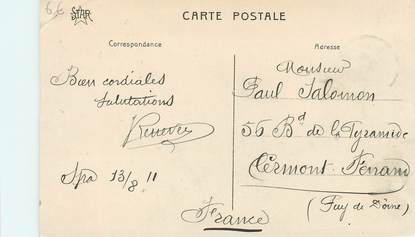 6 €
STAR
CARTE POSTALE
Correspondance
Adresse
Bien cordiales
salutations
Spa 13/8 11
Monsieur
Paul Salomon
56 Bd de la Pyramide
Clermont-Ferrand
(Puy de Dôme)
France